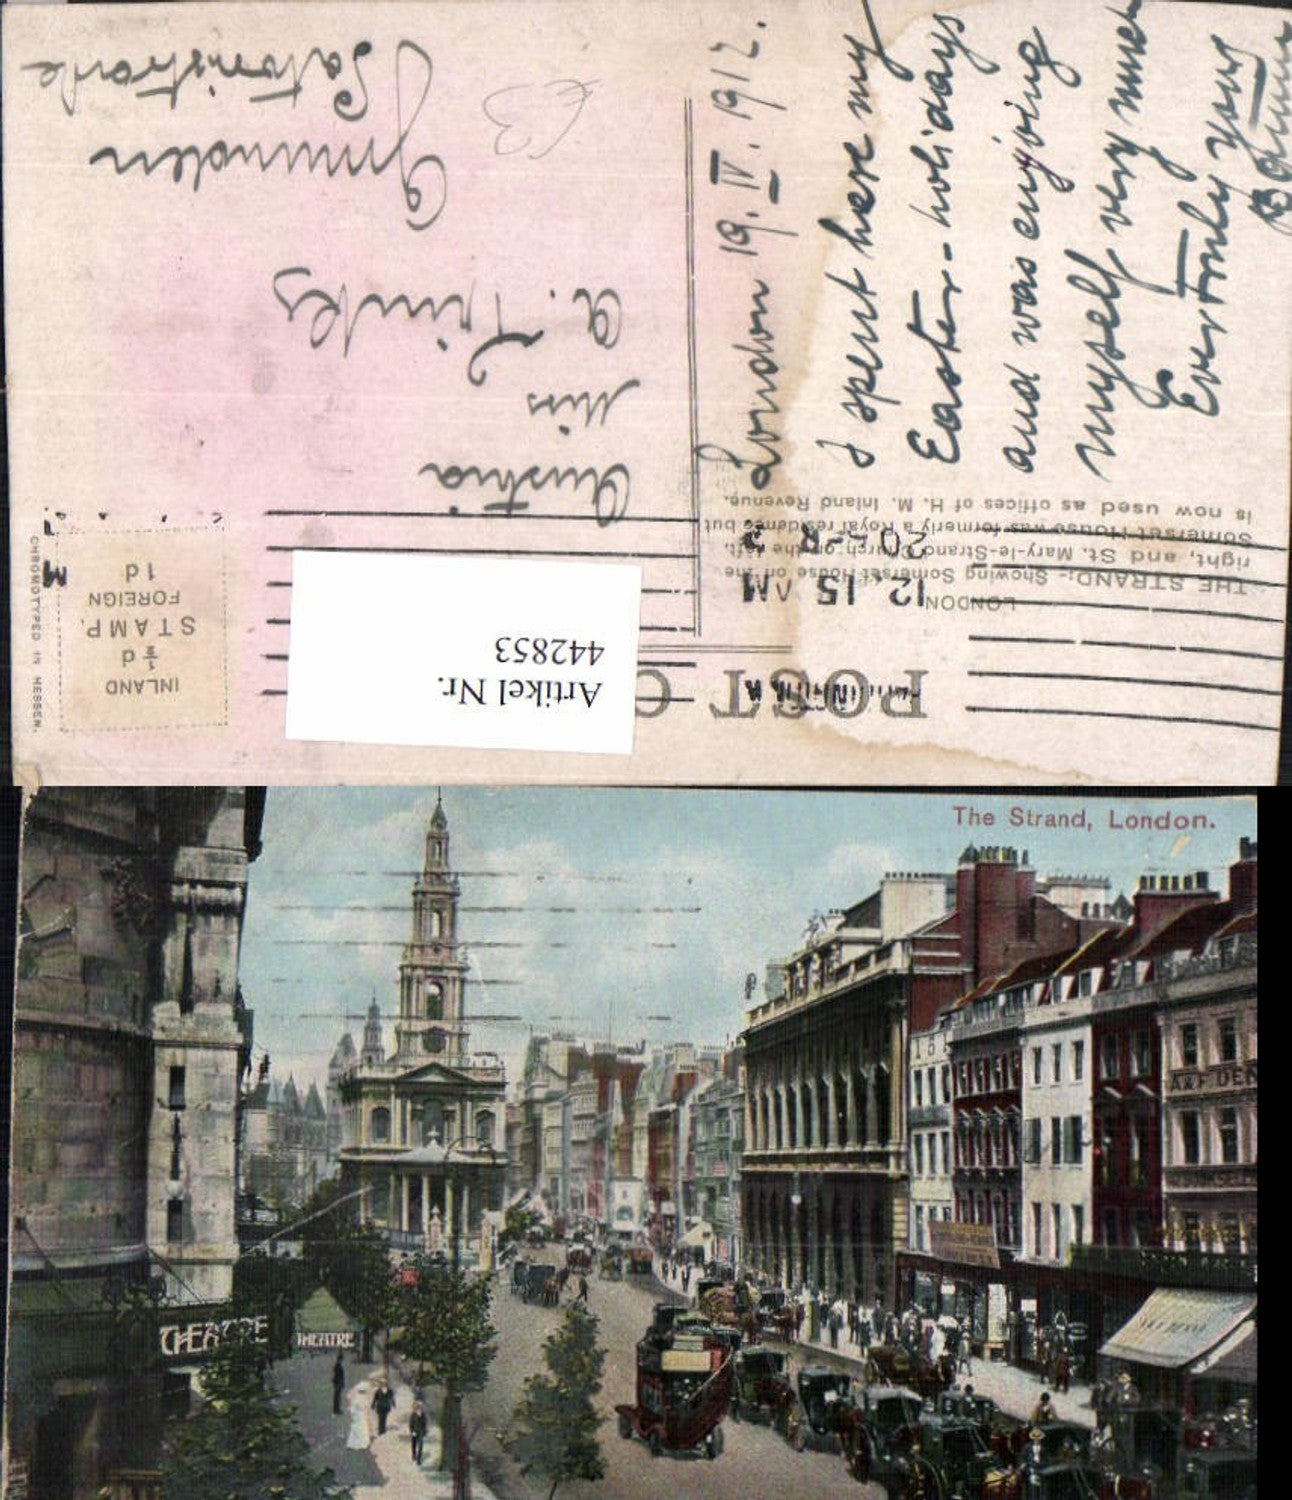 POST C
LONDON
THE STRAND:- Showing Somerset House on the
right, and St. Mary-le-Strand Church on the left.
Somerset House was formerly a Royal residence but
is now used as offices of H. M. Inland Revenue.
12.15 AM
20 APR
INLAND
½d
STAMP.
FOREIGN
1d
CHROMOTYPED IN HESSEN.
Artikel Nr.
442853
London 19. IV. 1912.
I spent here my
Easter-holidays
and was enjoing
myself very much
Ever your
Austria
Miss
Gmunden
£3
The Strand, London.
THEATRE
THEATRE
A & F. DEN